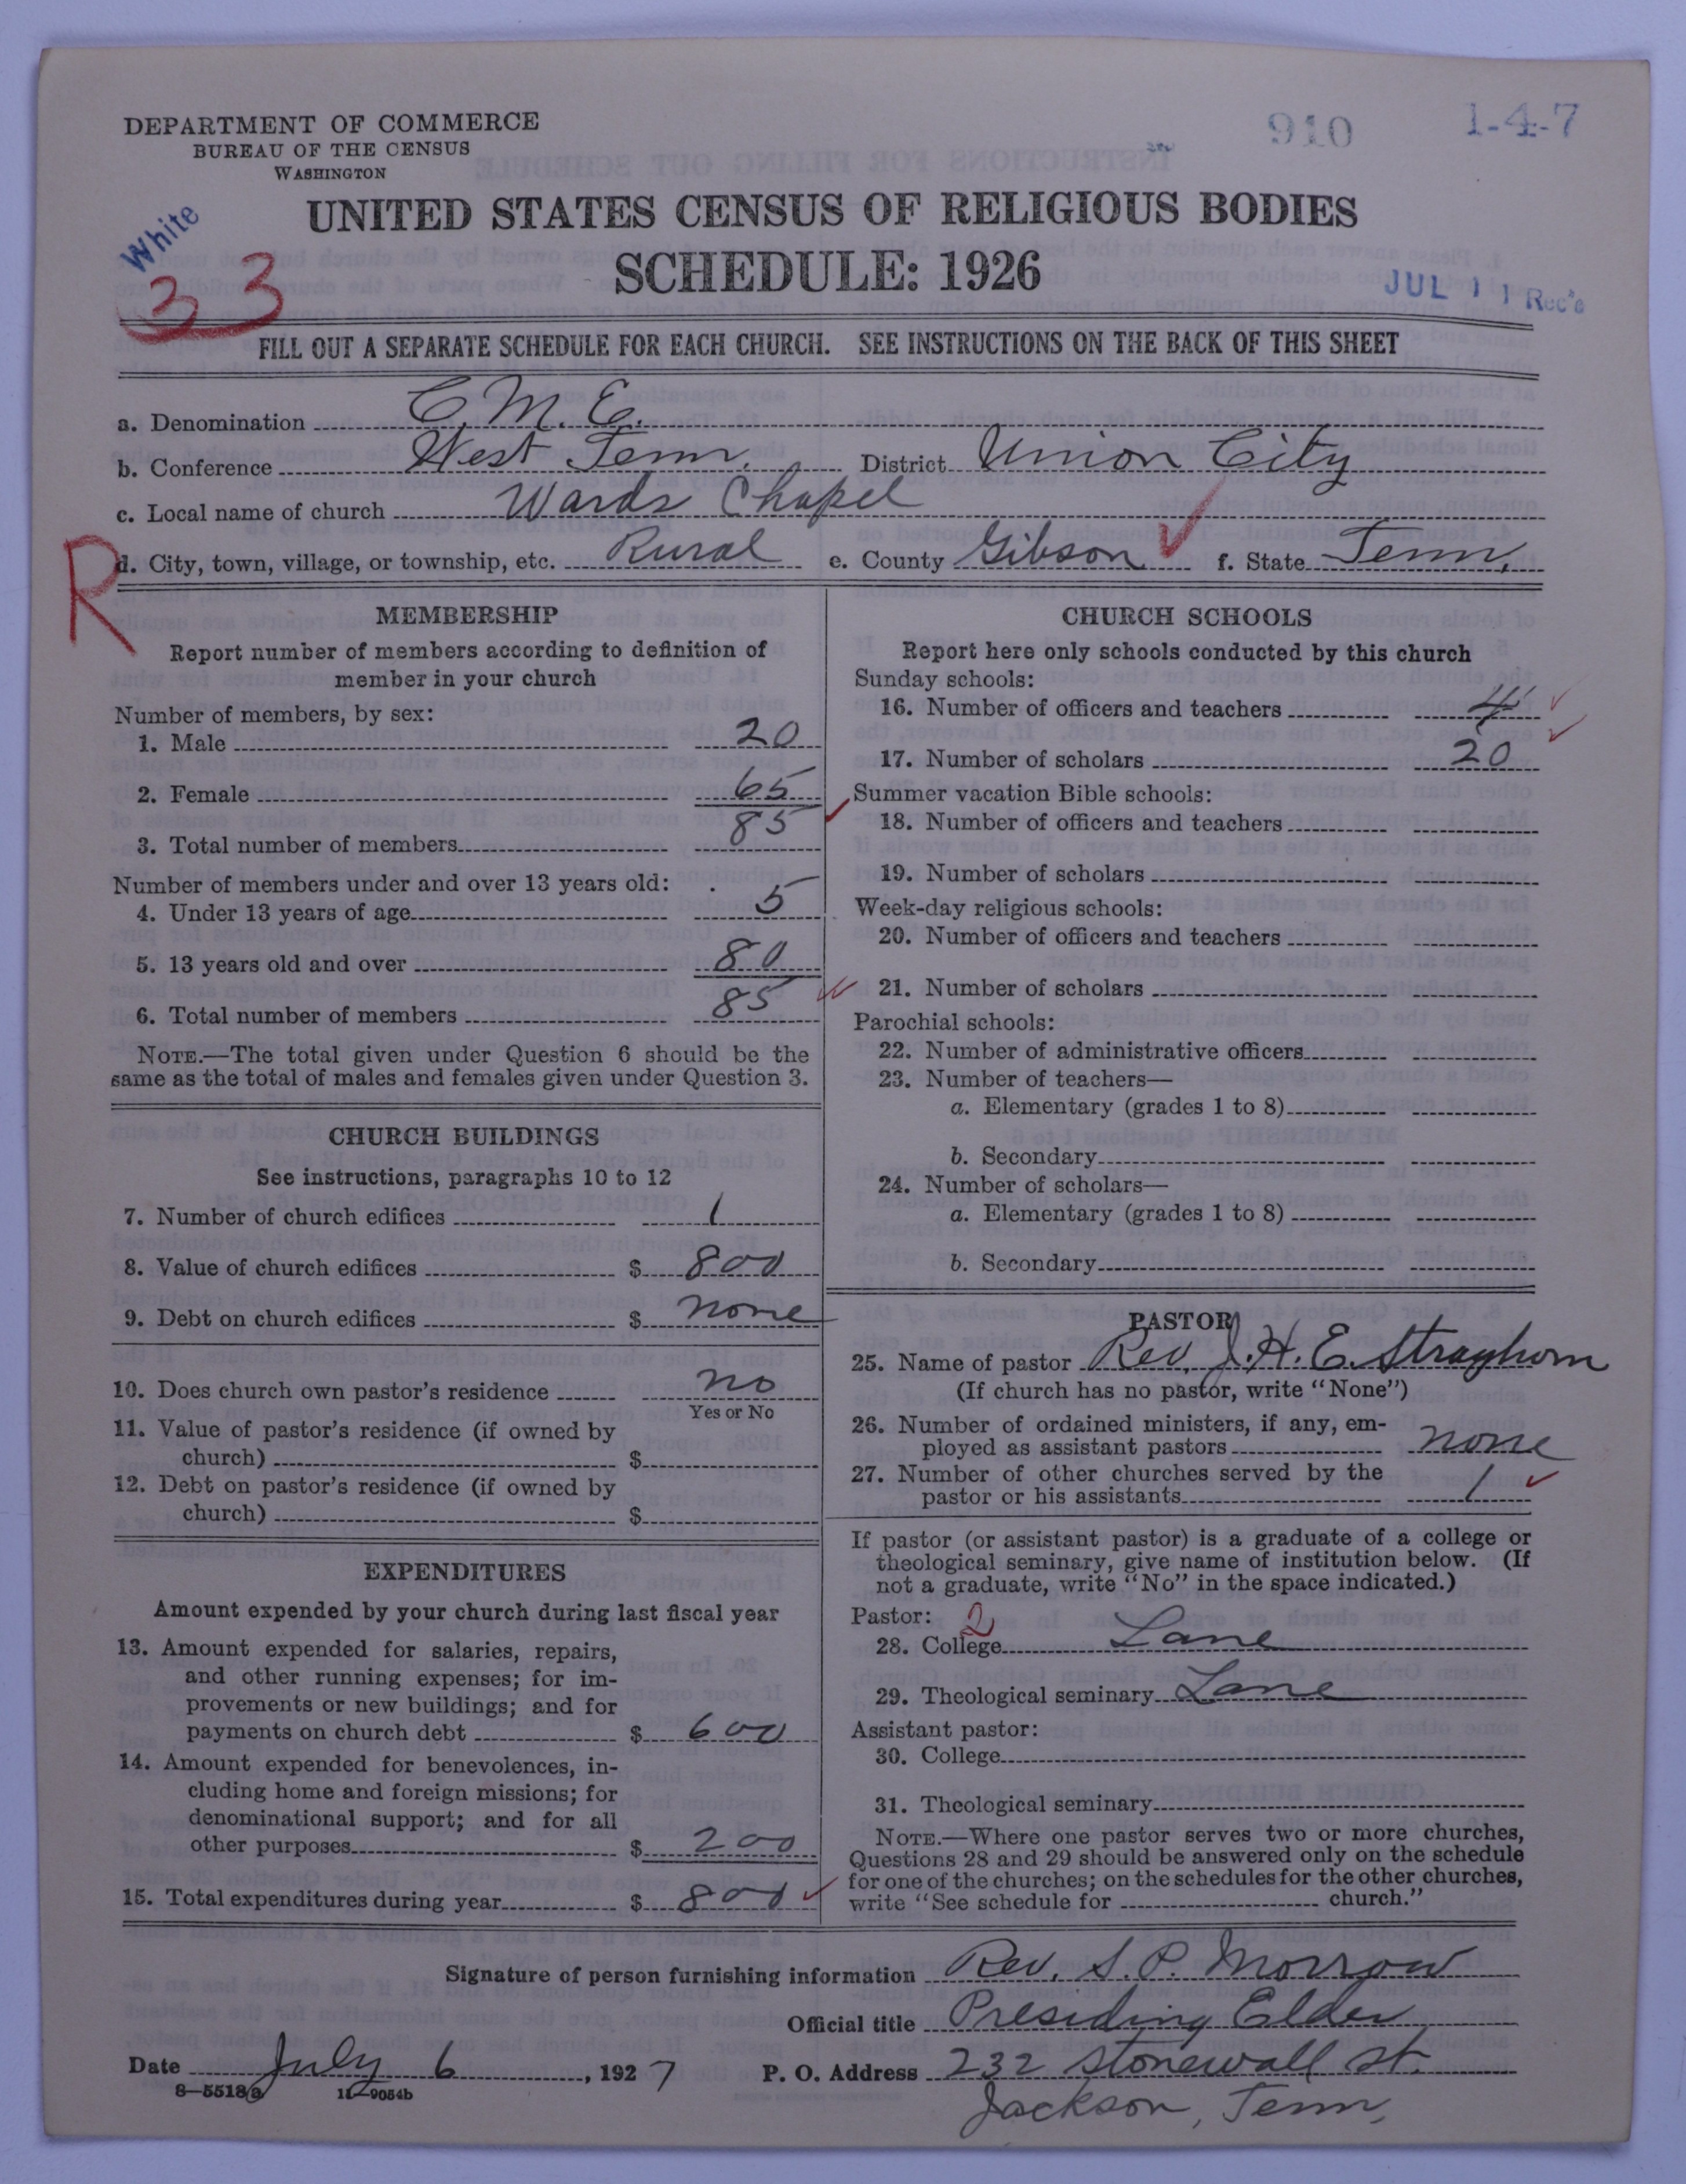 DEPARTMENT OF COMMERCE
BUREAU OF THE CENSUS
WASHINGTON
910
1-4-7
UNITED STATES CENSUS OF RELIGIOUS BODIES
White
33
SCHEDULE: 1926
JUL 11 Rec'd
FILL OUT A SEPARATE SCHEDULE FOR EACH CHURCH. SEE INSTRUCTIONS ON THE BACK OF THIS SHEET
a. Denomination C.M.E.
b. Conference West Tenn. District Union City
c. Local name of church Wards Chapel
R
d. City, town, village, or township, etc. Rural e. County Gibson f. State Tenn.
MEMBERSHIP
Report number of members according to definition of
member in your church
Number of members, by sex:
1. Male 20
2. Female 65
3. Total number of members 85
Number of members under and over 13 years old:
4. Under 13 years of age 5
5. 13 years old and over 80
6. Total number of members 85
NOTE.—The total given under Question 6 should be the
same as the total of males and females given under Question 3.
CHURCH BUILDINGS
See instructions, paragraphs 10 to 12
7. Number of church edifices 1
8. Value of church edifices $ 800
9. Debt on church edifices $ none
10. Does church own pastor's residence no
Yes or No
11. Value of pastor's residence (if owned by
church) $
12. Debt on pastor's residence (if owned by
church) $
EXPENDITURES
Amount expended by your church during last fiscal year
13. Amount expended for salaries, repairs,
and other running expenses; for im-
provements or new buildings; and for
payments on church debt $ 600
14. Amount expended for benevolences, in-
cluding home and foreign missions; for
denominational support; and for all
other purposes $ 200
15. Total expenditures during year $ 800
CHURCH SCHOOLS
Report here only schools conducted by this church
Sunday schools:
16. Number of officers and teachers 4
17. Number of scholars 20
Summer vacation Bible schools:
18. Number of officers and teachers
19. Number of scholars
Week-day religious schools:
20. Number of officers and teachers
21. Number of scholars
Parochial schools:
22. Number of administrative officers
23. Number of teachers—
a. Elementary (grades 1 to 8)
b. Secondary
24. Number of scholars—
a. Elementary (grades 1 to 8)
b. Secondary
PASTOR
25. Name of pastor Rev. J.H.E. Strayhorn
(If church has no pastor, write "None")
26. Number of ordained ministers, if any, em-
ployed as assistant pastors none
27. Number of other churches served by the
pastor or his assistants 1
If pastor (or assistant pastor) is a graduate of a college or
theological seminary, give name of institution below. (If
not a graduate, write "No" in the space indicated.)
Pastor: 2
28. College Lane
29. Theological seminary Lane
Assistant pastor:
30. College
31. Theological seminary
NOTE.—Where one pastor serves two or more churches,
Questions 28 and 29 should be answered only on the schedule
for one of the churches; on the schedules for the other churches,
write "See schedule for church."
Signature of person furnishing information Rev. S. P. Morrow
Official title Presiding Elder
Date July 6, 1927 P. O. Address 232 Stonewall St.
8-5518a 11-9054b
Jackson, Tenn.